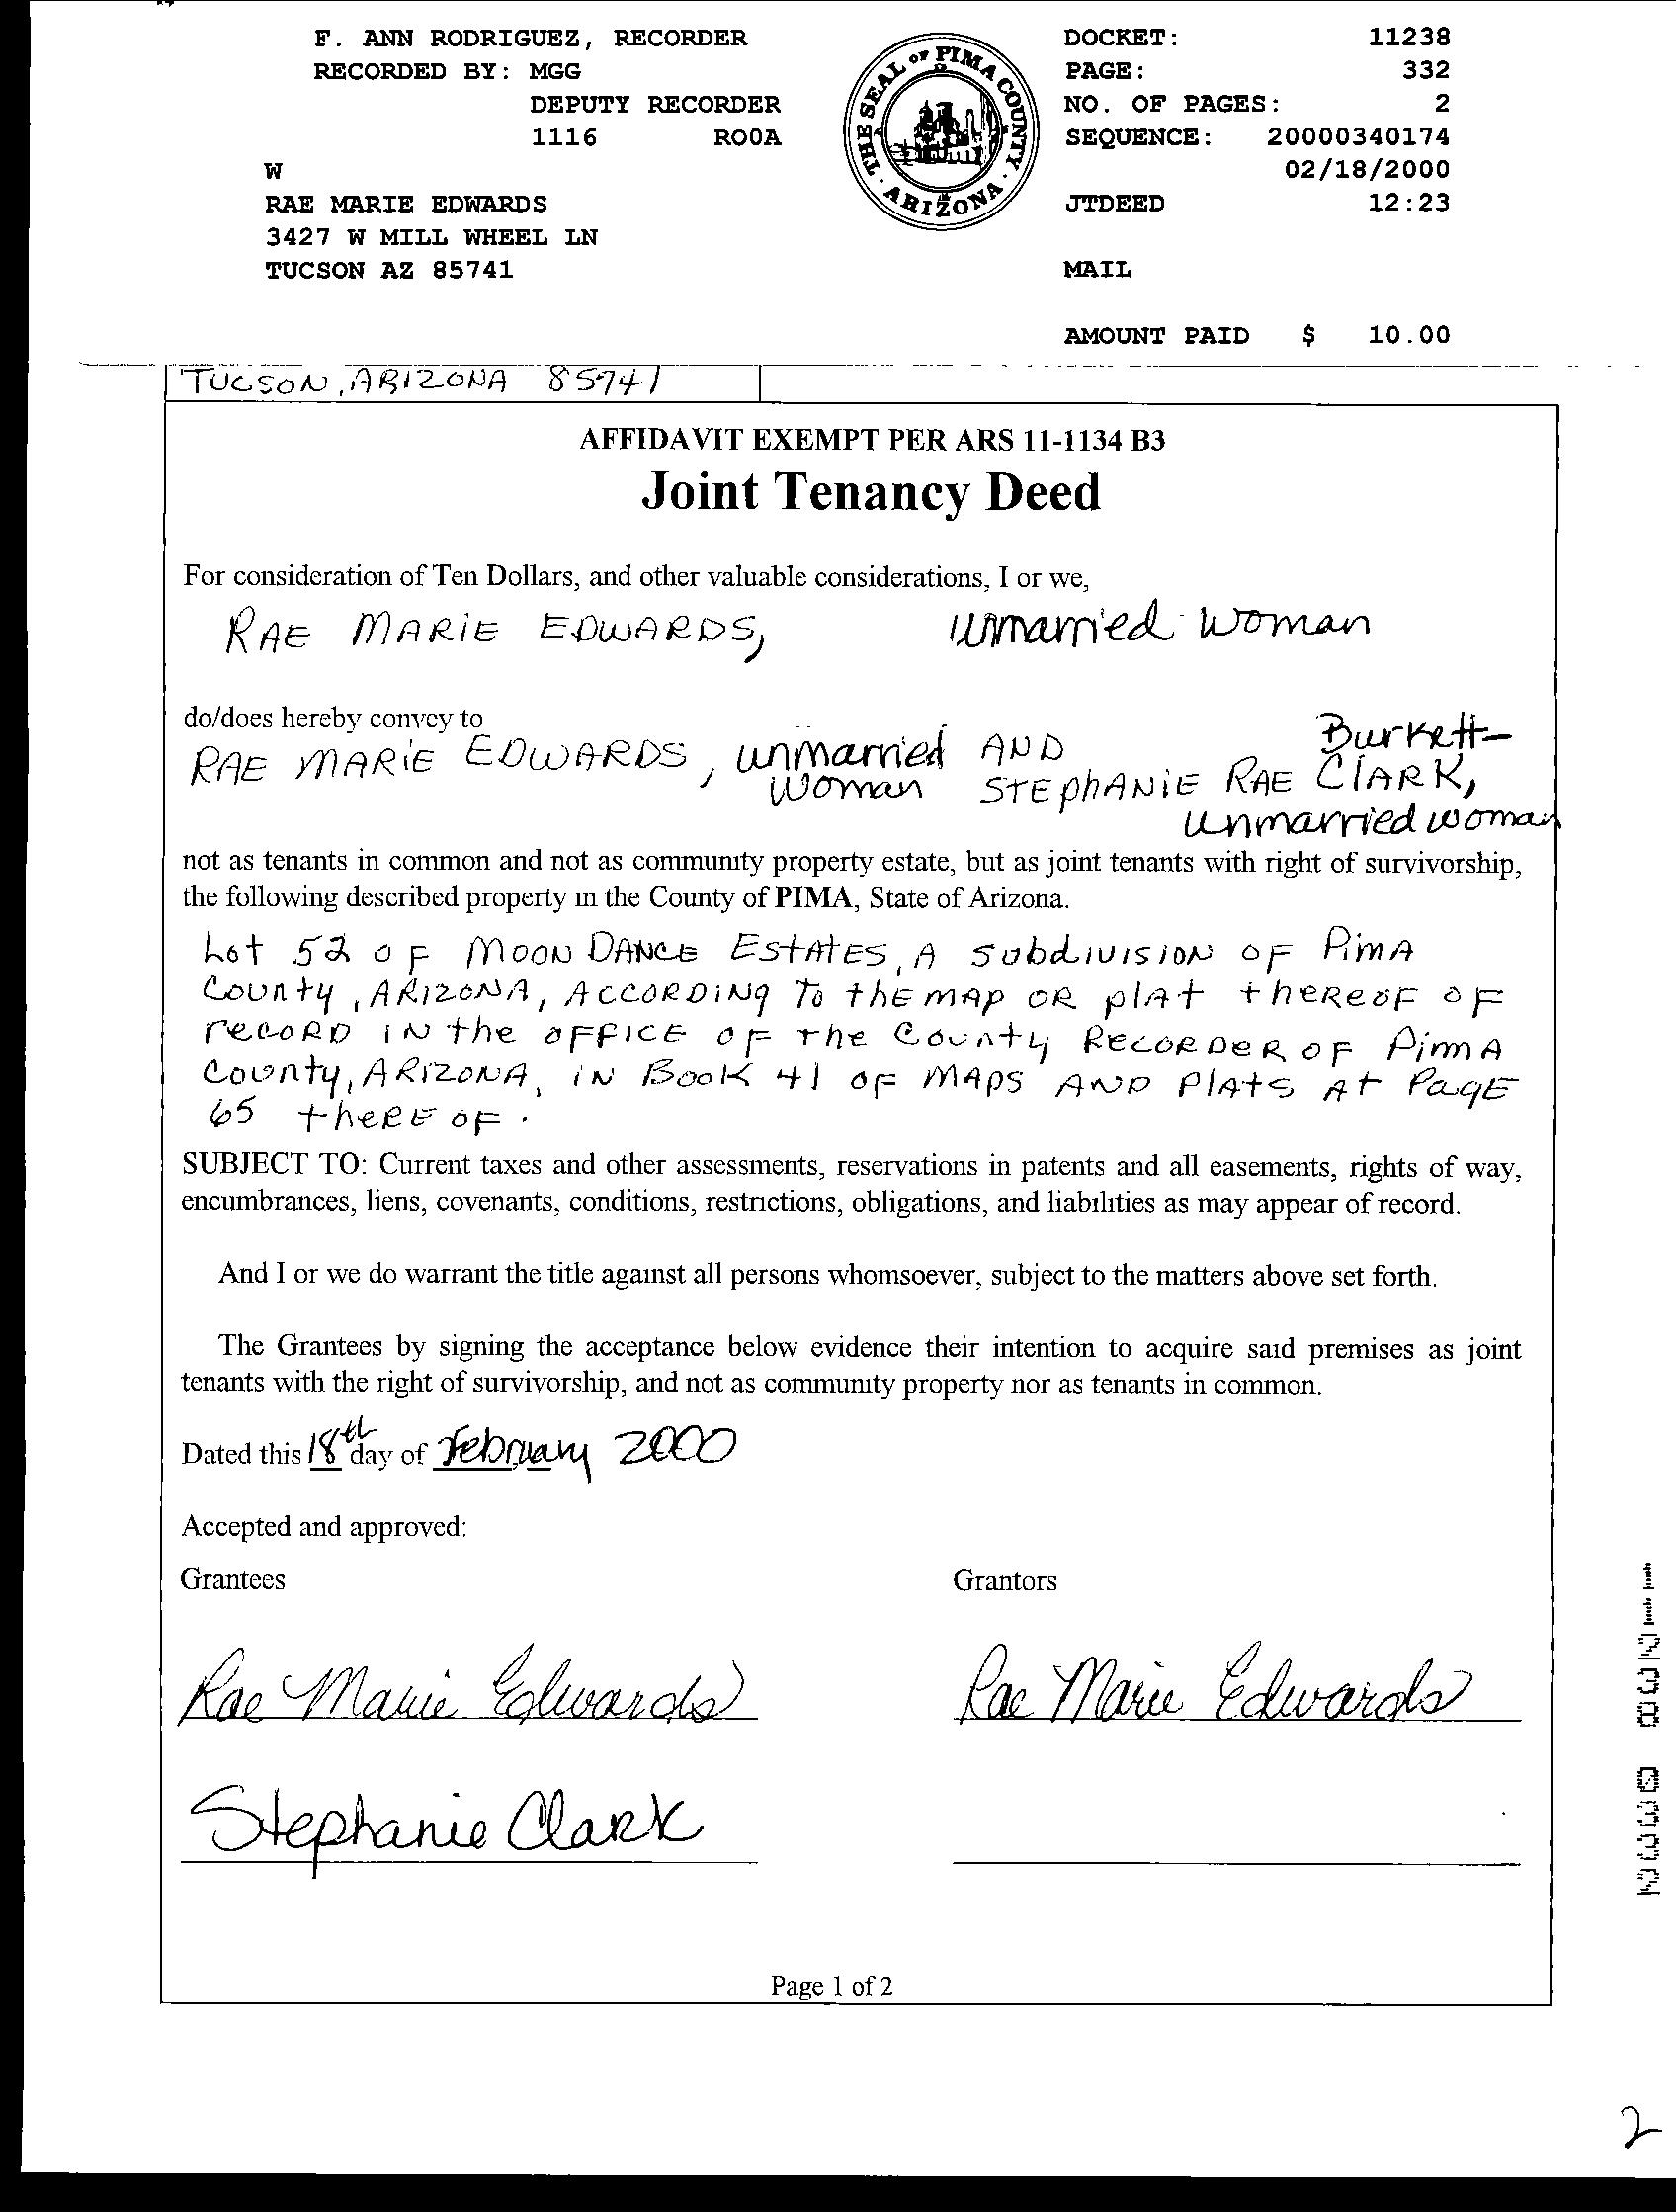 F. ANN RODRIGUEZ, RECORDER
RECORDED BY: MGG
DEPUTY RECORDER
1116 ROOA
W
RAE MARIE EDWARDS
3427 W MILL WHEEL LN
TUCSON AZ 85741
THE SEAL OF PIMA COUNTY · ARIZONA ·
DOCKET: 11238
PAGE: 332
NO. OF PAGES: 2
SEQUENCE: 20000340174
02/18/2000
JTDEED 12:23
MAIL
AMOUNT PAID $ 10.00
TUCSON, ARIZONA 85741
AFFIDAVIT EXEMPT PER ARS 11-1134 B3
Joint Tenancy Deed
For consideration of Ten Dollars, and other valuable considerations, I or we,
RAE MARIE EDWARDS, unmarried woman
do/does hereby convey to
RAE MARIE EDWARDS, unmarried woman AND STEPHANIE RAE Burkett-CLARK,
unmarried woman
not as tenants in common and not as community property estate, but as joint tenants with right of survivorship,
the following described property in the County of PIMA, State of Arizona.
Lot 52 OF MOON DANCE EStAtES, A SubdivISION OF PimA
County, ARIZONA, ACCORDING To thE MAP OR plAt theREOF OF
recoRD iN the OFFICE OF The County RECORDER OF PimA
County, ARIZONA, iN Book 41 OF MAPS AND PlAtS At PagE
65 theREOF.
SUBJECT TO: Current taxes and other assessments, reservations in patents and all easements, rights of way,
encumbrances, liens, covenants, conditions, restrictions, obligations, and liabilities as may appear of record.
And I or we do warrant the title against all persons whomsoever, subject to the matters above set forth.
The Grantees by signing the acceptance below evidence their intention to acquire said premises as joint
tenants with the right of survivorship, and not as community property nor as tenants in common.
Dated this 18th day of February 2000
Accepted and approved:
Grantees Grantors
Rae Marie Edwards Rae Marie Edwards
Stephanie Clark
Page 1 of 2
2